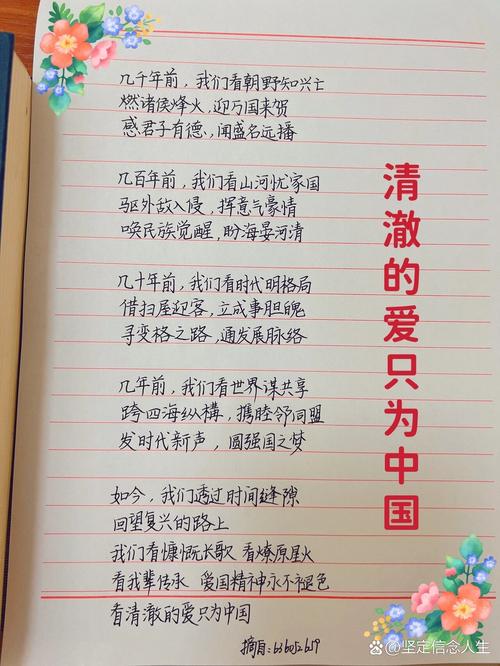 几千年前，我们看朝野知兴亡
燃诸侯烽火，迎万国来贺
感君子有德，闻盛名远播
几百年前，我们看山河忧家国
驱外敌入侵，挥意气豪情
唤民族觉醒，盼海晏河清
几十年前，我们看时代明格局
借扫屋迎客，立成事胆魄
寻变格之路，通发展脉络
几年前，我们看世界谋共享
跨四海纵横，携睦邻同盟
发时代新声，圆强国之梦
如今，我们透过时间缝隙
回望复兴的路上
我们看慷慨长歌 看燎原星火
看我辈传承 爱国精神永不褪色
看清澈的爱只为中国
摘自：
清澈的爱只为中国
@坚定信念人生